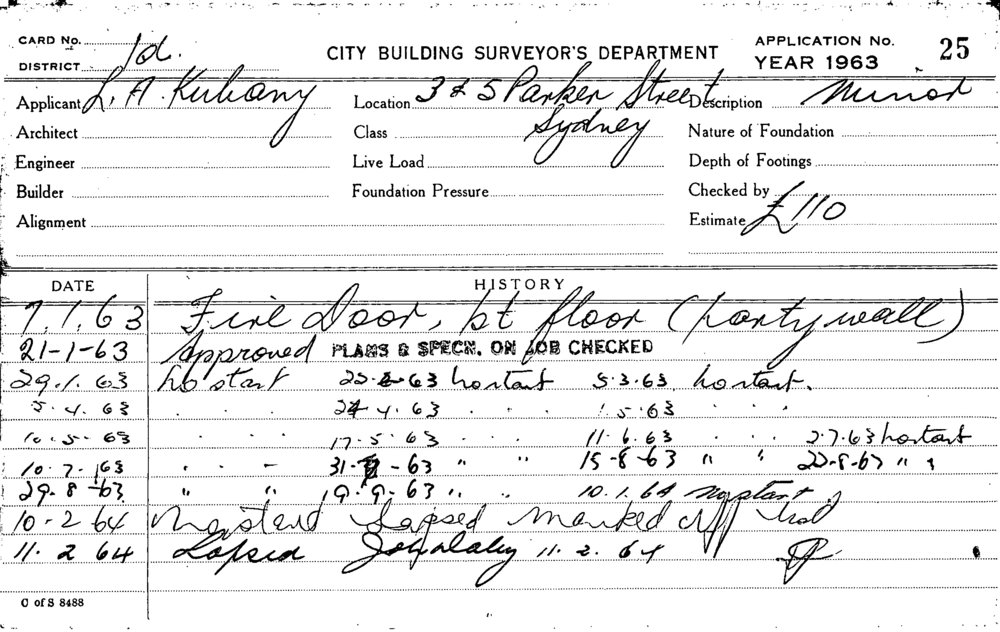 CARD No. CITY BUILDING SURVEYOR'S DEPARTMENT APPLICATION No. 25
DISTRICT 1d. YEAR 1963
Applicant L. A. Kuhany Location 3 & 5 Parker Street Description Minor
Architect Class Sydney Nature of Foundation
Engineer Live Load Depth of Footings
Builder Foundation Pressure Checked by
Alignment Estimate £110
DATE HISTORY
7.1.63 Fire Door, 1st floor (party wall)
21-1-63 Approved PLANS & SPECN. ON JOB CHECKED
29.1.63 No start 22-2-63 No start 5.3.63. No start.
5.4.63 . . . 24.4.63 . . . 1.5.63 . . .
10.5.63 . . . 17.5.63 . . . 11.6.63 . . . 2.7.63 No start
10.7.63 . . - 31-7-63 " " 15-8-63 " " 22-8-63 " "
29.8-63. " " 19.9.63 " . 10.1.64 No start
10-2 64 No start Lapsed marked off
11.2 64 Lapsed 11.2.64
C of S 8488